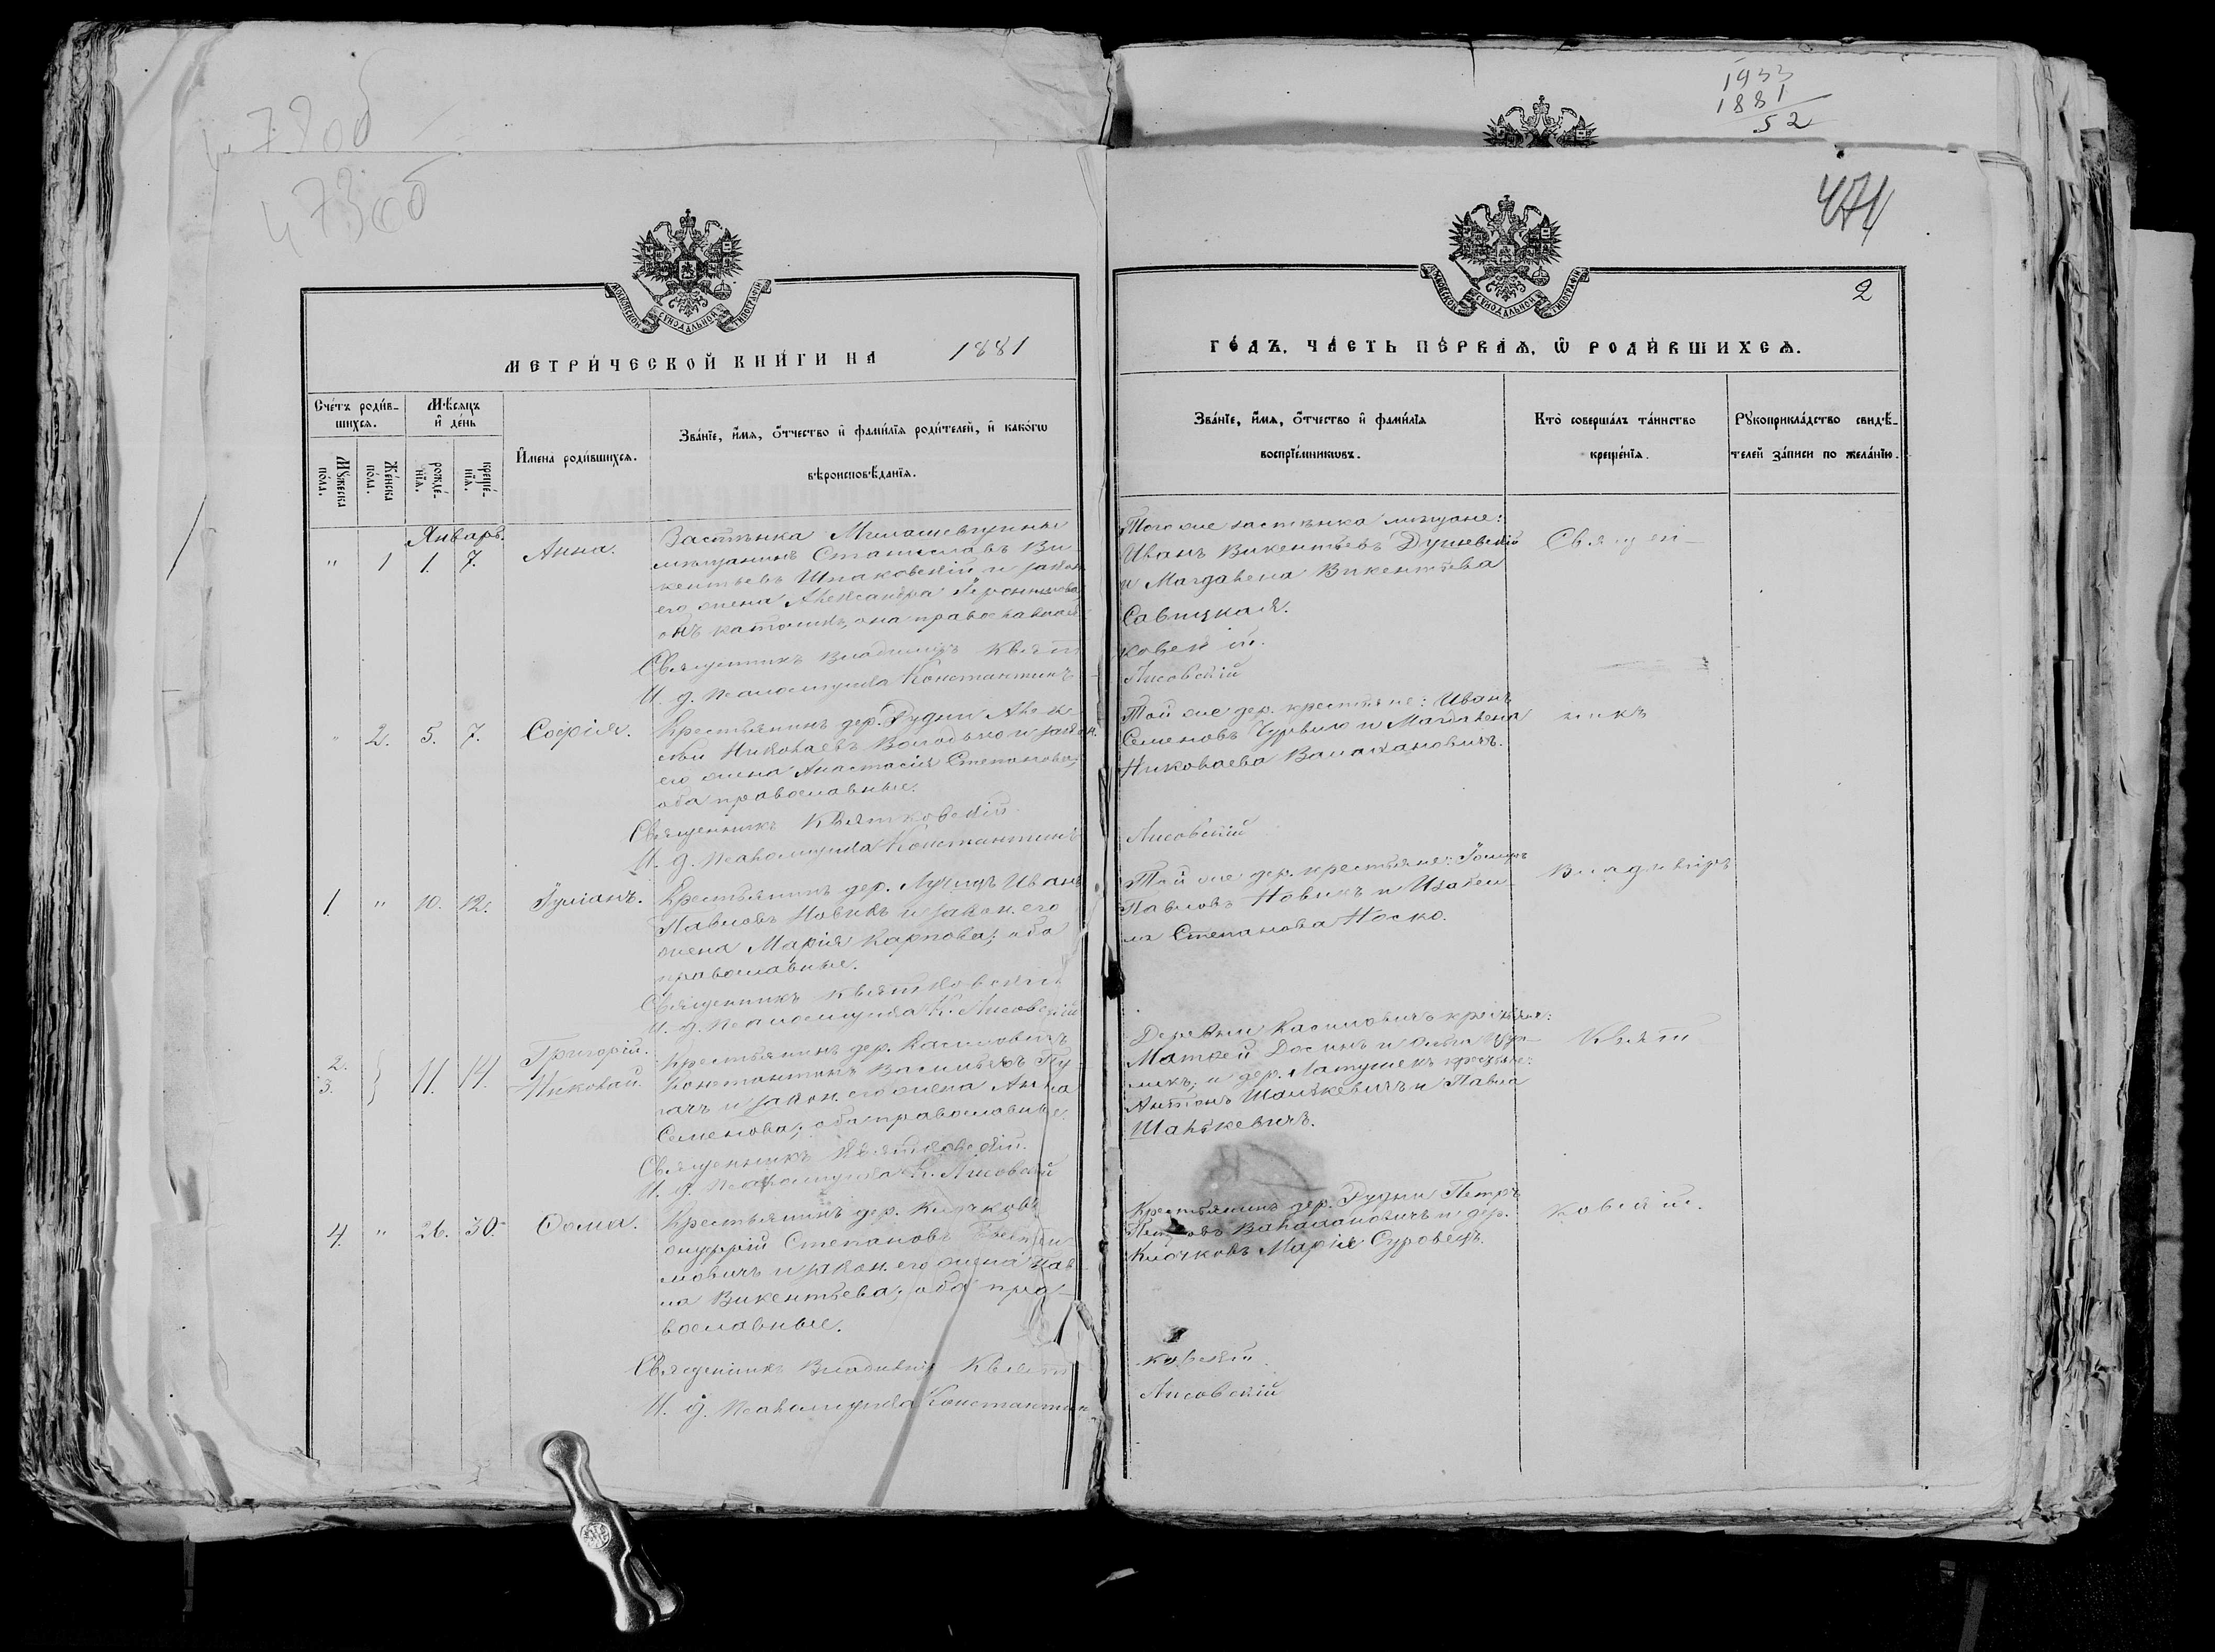 1933
1881
52
4730б
474
2
МОСКОВСКОЙ СѴНОДАЛЬНОЙ ТИПОГРАФІИ
МОСКОВСКОЙ СѴНОДАЛЬНОЙ ТИПОГРАФІИ
МЕТРИ́ЧЕСКОЙ КНИ́ГИ НА 1881
ГО́ДЪ, ЧА́СТЬ ПЕ́РВАЯ, Ѡ҆ РОДИ́ВШИХСЯ.
Сче́тъ роди́в-
шихся.
Му́жеска
по́ла.
Же́нска
по́ла.
Мѣ́сяцъ
и҆ де́нь
рожде́-
нія.
креще́-
нія.
И҆мена̀ роди́вшихся.
Зва́ніе, и҆́мя, ѻ҆́тчество и҆ фами́лія роди́телей, и҆ како́гѡ
вѣроисповѣ́данія.
Зва́ніе, и҆́мя, ѻ҆́тчество и҆ фами́лія
воспріе́мниковъ.
Кто̀ соверша́лъ та́инство
креще́нія.
Рꙋкоприкла́дство свидѣ́-
телей за́писи по жела́нію.
Январь.
" 1 1. 7. Анна.
Застѣнка Милашевщины
мѣщанинъ Станиславъ Ви-
кентьевъ Шпаковскій и закон
его жена Александра
онъ католикъ, она православная
Священникъ Владиміръ Квят
И. д. псаломщика Константинъ
Того же застѣнка мѣщане:
Иванъ Викентьевъ
и Магдалена Викентьева
Савицкая.
ковскій.
Лисовскій
Священ-
" 2. 5. 7. Софія.
Крестьянинъ дер. Рудни Алек
сѣй Николаевъ Володько и закон.
его жена Анастасія Степанова;
оба православные.
Священникъ Квятковскій
И. д. псаломщика Константинъ
Той же дер. крестьяне: Иванъ
Семеновъ и Магдалена
Николаева Валахановичъ.
Лисовскій
никъ
1. " 10. 12. Іуліанъ.
Крестьянинъ дер. Лучицъ Иванъ
Павловъ Новикъ и закон. его
жена Марія Карпова; оба
православные.
Священникъ Квятковскій
И. д. псаломщика К. Лисовскій
Той же дер. крестьяне:
Павловъ Новикъ и Изабел-
ла Степанова Носко.
Владиміръ
2.
3. } 11. 14. Григорій.
Николай.
Крестьянинъ дер. Касиловичъ
Константинъ Васильевъ Пу-
гачъ и закон. его жена Анна
Семенова; оба православные.
Священникъ Квятковскій.
И. д. псаломщика К. Лисовскій
Деревни Касиловичъ крестьян:
Матѳей и
микъ; и дер. Латушекъ крестьяне
Антонъ и Павла
Шалькевичъ.
Квят
4. " 26. 30. Ѳома.
Крестьянинъ дер. Клочковъ
Онуфрій Степановъ
мовичъ и закон. его жена Пав-
ла Викентьева; оба пра-
вославные.
Священникъ Владиміръ Квят
И. д. псаломщика Константин
Крестьянинъ дер. Рудни Петръ
Петровъ Валахановичъ и дер.
Клочковъ Марія Суровецъ.
ковскій.
Лисовскій
ковскій.